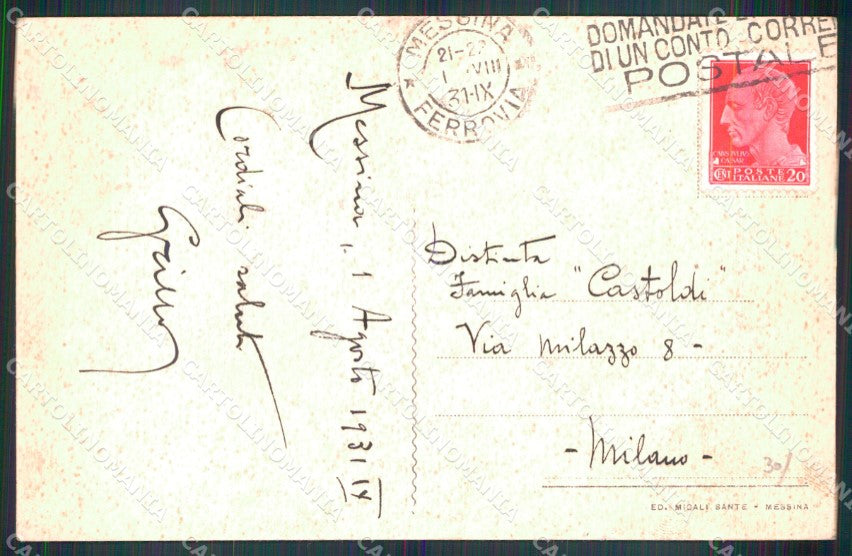 MESSINA
21-22
1 VIII
31-IX
FERROVIA
DOMANDATE
DI UN CONTO CORRE
POSTALE
CAIVS IVLIVS
CAESAR
CENT POSTE ITALIANE 20
Messina, 1 Agosto 1931 IX
Cordiali saluti
Distinta
Famiglia "Castoldi"
Via Milazzo 8 -
- Milano -
30/
ED. MICALI SANTE - MESSINA
CARTOLINOMANIA